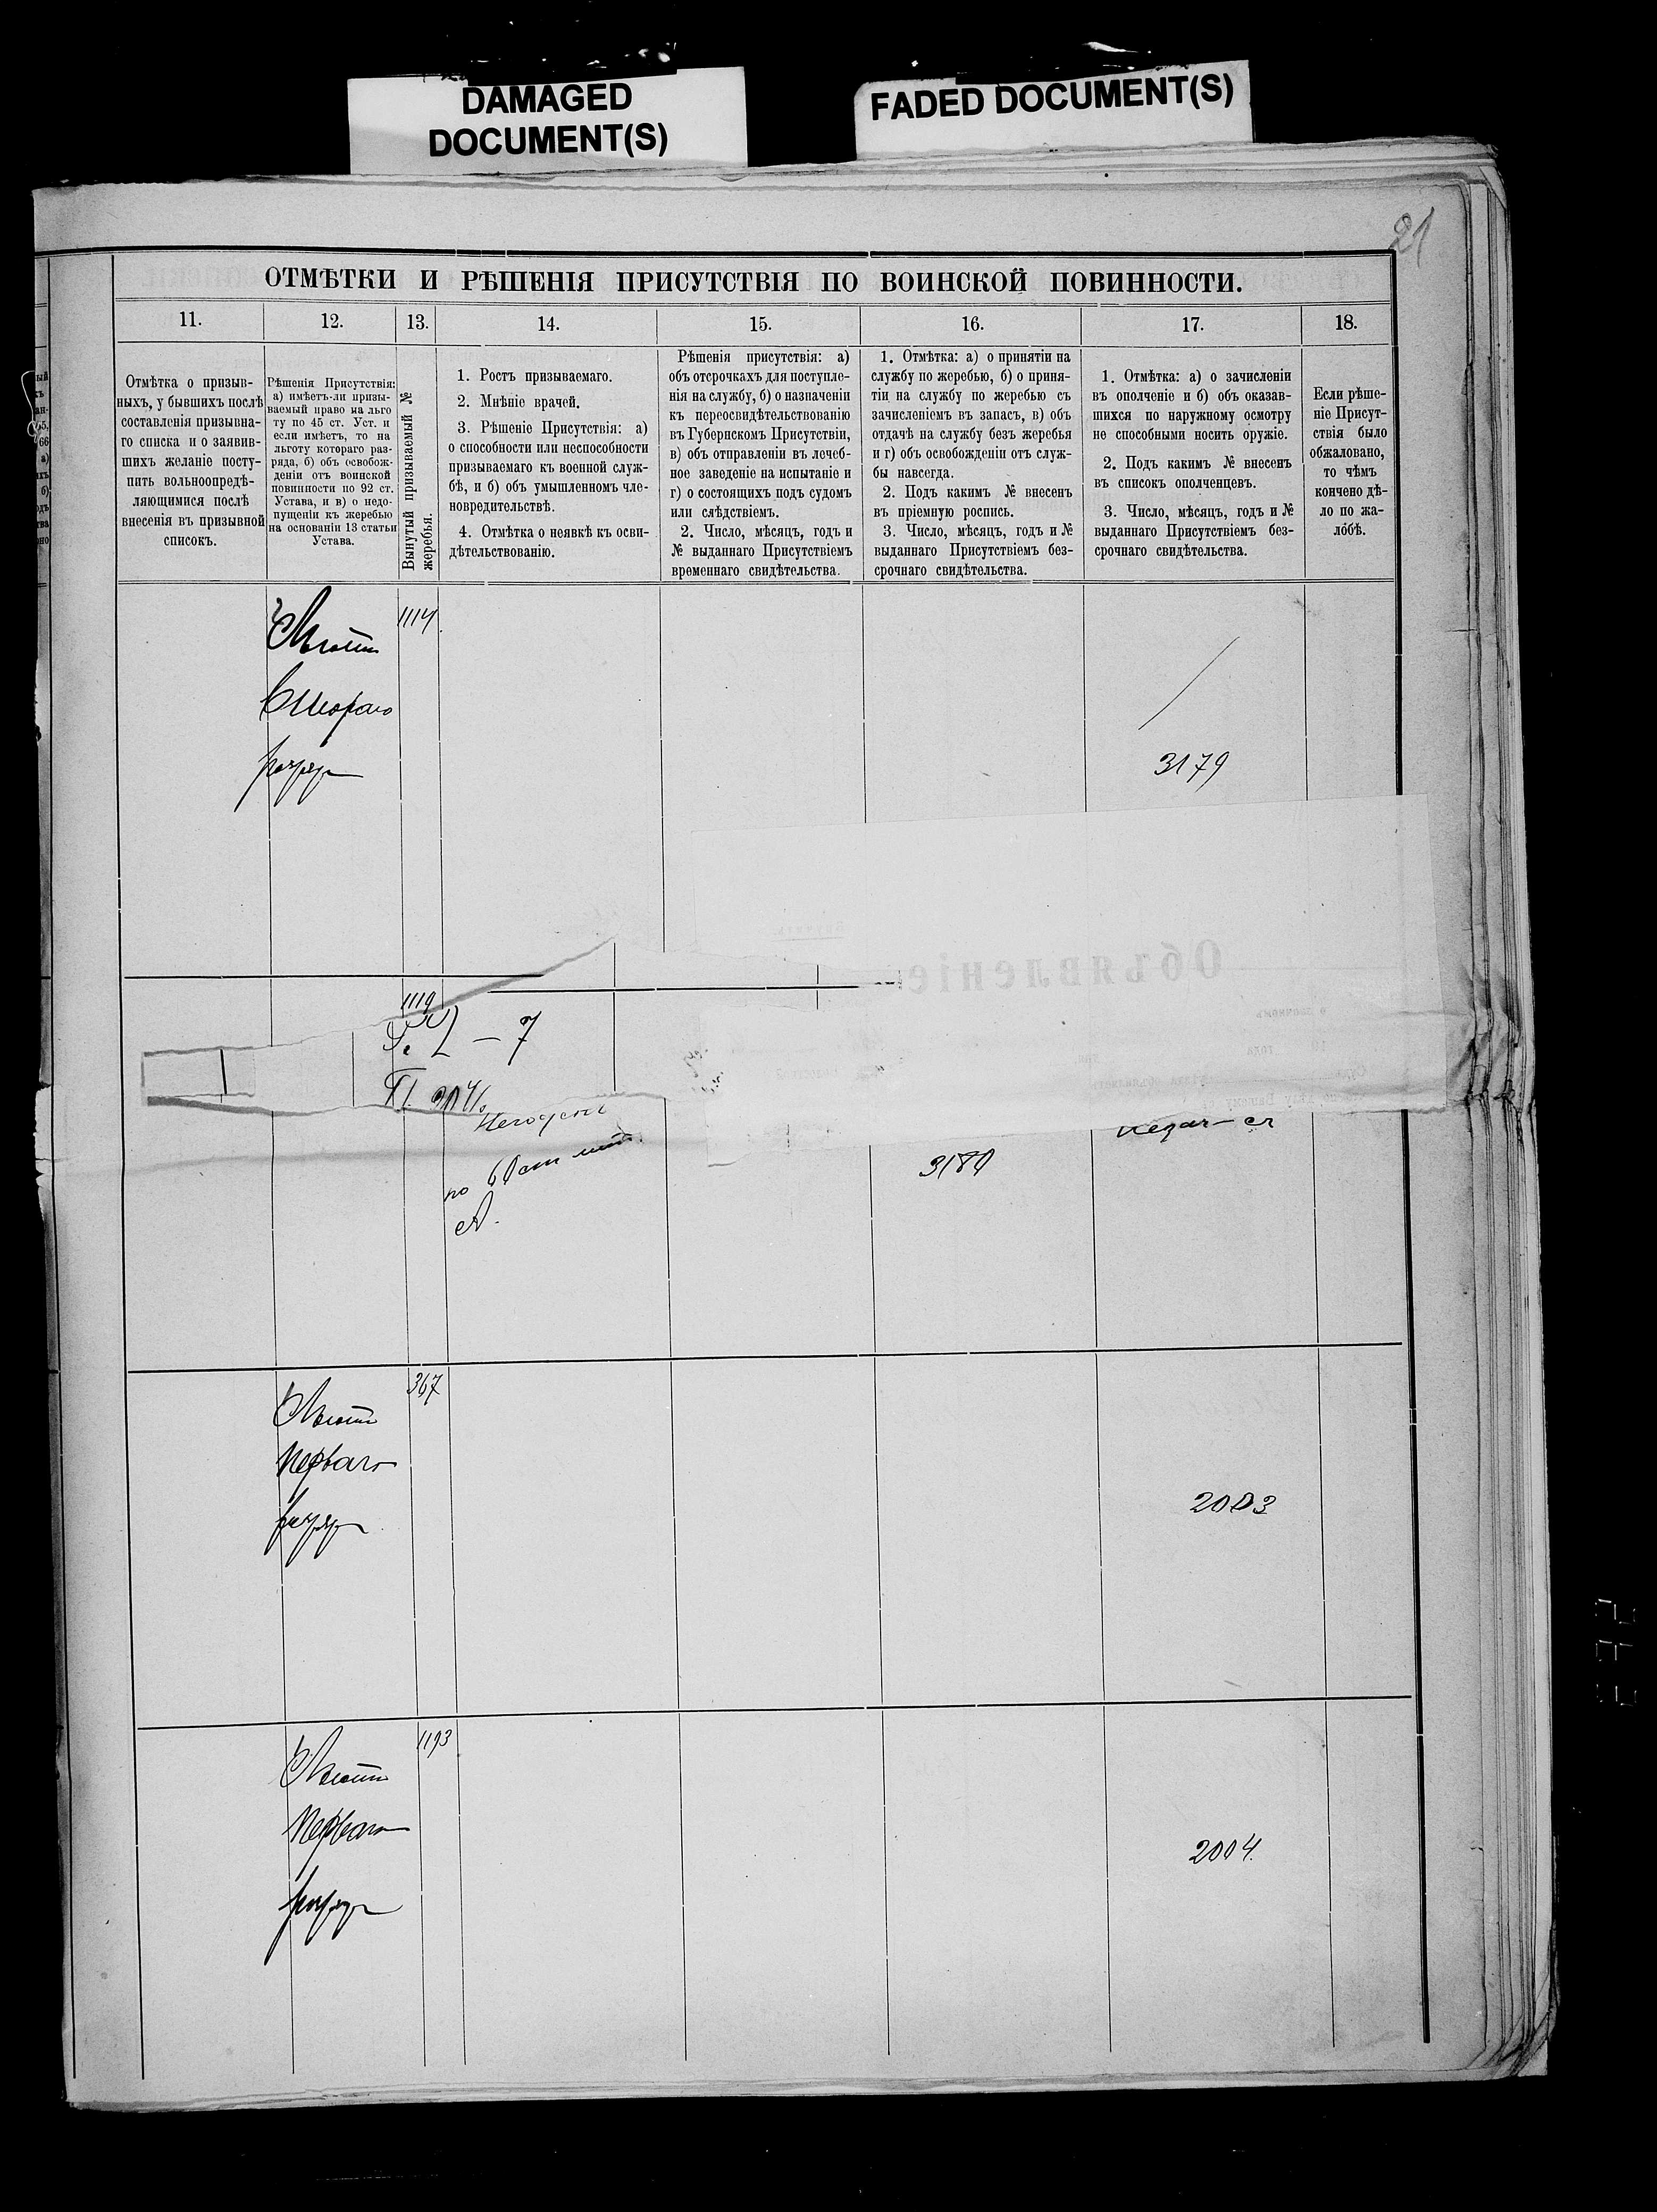 DAMAGED
DOCUMENT(S)
FADED DOCUMENT(S)
21
ОТМѢТКИ И РѢШЕНІЯ ПРИСУТСТВІЯ ПО ВОИНСКОЙ ПОВИННОСТИ.
11.
12.
13.
14.
15.
16.
17.
18.
Отмѣтка о призыв-
ныхъ, у бывшихъ послѣ
составленія призывна-
го списка и о заявив-
шихъ желаніе посту-
пить вольноопредѣ-
ляющимися послѣ
внесенія въ призывной
списокъ.
Рѣшенія Присутствія:
а) имѣетъ-ли призы-
ваемый право на льго
ту по 45 ст. Уст. и
если имѣетъ, то на
льготу котораго раз-
ряда, б) объ освобож-
деніи отъ воинской
повинности по 92 ст.
Устава, и в) о недо-
пущеніи къ жеребью
на основаніи 13 статьи
Устава.
Вынутый призываемый №
жеребья.
1. Ростъ призываемаго.
2. Мнѣніе врачей.
3. Рѣшеніе Присутствія: а)
о способности или неспособности
призываемаго къ военной служ-
бѣ, и б) объ умышленномъ чле-
новредительствѣ.
4. Отмѣтка о неявкѣ къ осви-
дѣтельствованію.
Рѣшенія присутствія: а)
объ отсрочкахъ для поступле-
нія на службу, б) о назначеніи
къ переосвидѣтельствованію
въ Губернскомъ Присутствіи,
в) объ отправленіи въ лечеб-
ное заведеніе на испытаніе и
г) о состоящихъ подъ судомъ
или слѣдствіемъ.
2. Число, мѣсяцъ, годъ и
№ выданнаго Присутствіемъ
временнаго свидѣтельства.
1. Отмѣтка: а) о принятіи на
службу по жеребью, б) о приня-
тіи на службу по жеребью съ
зачисленіемъ въ запасъ, в) объ
отдачѣ на службу безъ жеребья
и г) объ освобожденіи отъ служ-
бы навсегда.
2. Подъ какимъ № внесенъ
въ пріемную роспись.
3. Число, мѣсяцъ, годъ и №
выданнаго Присутствіемъ без-
срочнаго свидѣтельства.
1. Отмѣтка: а) о зачисленіи
въ ополченіе и б) объ оказав-
шихся по наружному осмотру
не способными носить оружіе.
2. Подъ какимъ № внесенъ
въ списокъ ополченцевъ.
3. Число, мѣсяцъ, годъ и №
выданнаго Присутствіемъ без-
срочнаго свидѣтельства.
Если рѣше-
ніе Присут-
ствія было
обжаловано,
то чѣмъ
кончено дѣ-
ло по жа-
лобѣ.
1114
Льготы
Втораго
разряд
3179
Объявленіе
1119
2 – 7
Негоденъ
по
3180
367
Льготы
Перваго
разряд
2003
1193
Льготы
Перваго
разряд
2004.